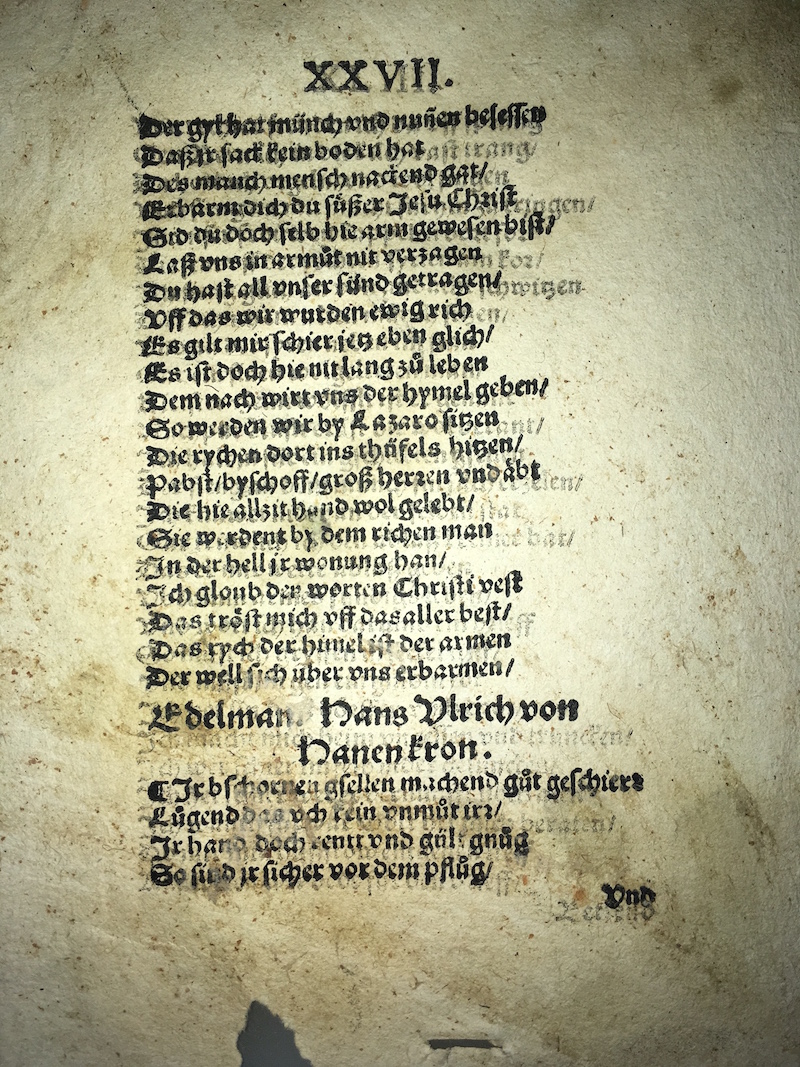 XXVII.
Der gyt hat münch vnd nuñen besessen
Daß ir sack kein boden hat
Des manch mensch nackend gat/
Erbarm dich du süßer Jesu Christ
Sid du doch selb hie arm gewesen bist/
Laß vns in armůt nit verzagen
Du hast all vnser sünd getragen/
Vff das wir wurden ewig rich
Es gilt mir schier jetz eben glich/
Es ist doch hie nit lang zů leben
Dem nach wirt vns der hymel geben/
So werden wir by Lazaro sitzen
Die rychen dort ins thüfels hitzen/
Pabst/byschoff/groß herren vnd äbt
Die hie allzit hand wol gelebt/
Sie werdent by dem richen man
In der hell jr wonung han/
Ich gloub den worten Christi vest
Das tröst mich vff das aller best/
Das rych der himel ist der armen
Der well sich über vns erbarmen/
Edelman. Hans Vlrich von
Hanenkron.
¶ Ir bschornen gsellen machend gůt geschierr
Lůgend das üch kein vnmůt irr/
Ir hand doch rentt vnd gült gnůg
So sind jr sicher vor dem pflůg/
Vnd